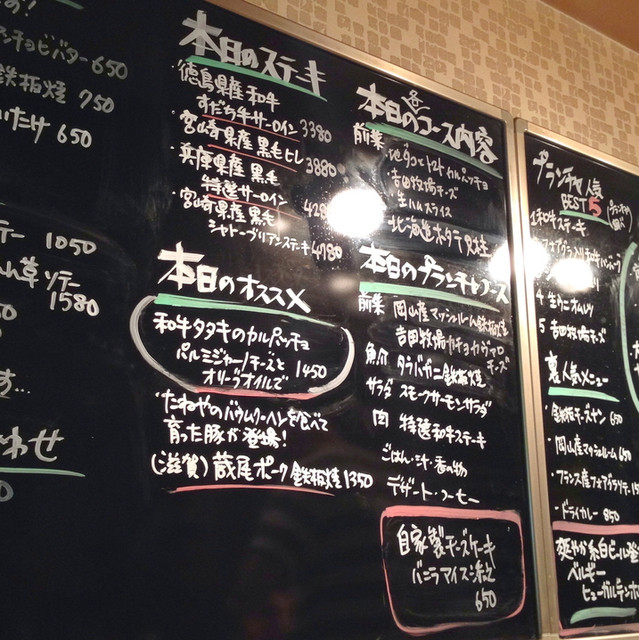 アンチョビバター 650
鉄板焼 750
いたけ 650
1050
草ソテー
1580
す…
わせ
本日のステーキ
・徳島県産和牛
すだち牛サーロイン 3380
・宮崎県産黒毛ヒレ
3880
・兵庫県産黒毛
特選サーロイン
・宮崎県産黒毛
シャトーブリアンステーキ 4780
本日のオススメ
和牛タタキのカルパッチョ
パルミジャーノチーズと
オリーブオイルで 1450
・たねやのバウムクーヘンを食べて
育った豚が登場!
(滋賀)蔵尾ポーク鉄板焼 1350
本日のコース内容
前菜
・地タコとトマトカルパッチョ
・吉田牧場チーズ
・生ハムスライス
・北海道ホタテ
本日のプランチャコース
前菜 岡山産マッシュルーム鉄板焼
吉田牧場カチョカヴァロ
チーズ
魚介 タラバガニ鉄板焼
サラダ スモークサーモンサラダ
肉 特選和牛ステーキ
ごはん・汁・香の物
デザート・コーヒー
自家製チーズケーキ
バニラアイス添え
650
プランチャ人気
BEST 5
1 和牛ステーキ
4 生ウニオムレツ
5 吉田牧場チーズ
裏人気メニュー
・岡山産マッシュルーム 650
・フランス産フォアグラソテー
・ドライカレー 850
爽やか系白ビール
ベルギー
ヒューガルデン